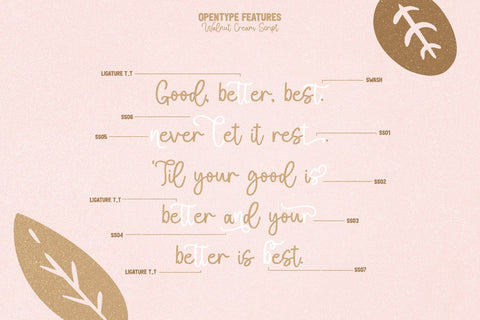 OPENTYPE FEATURES
Walnut Cream Script
LIGATURE T_T
SWASH
Good, better, best.
SS06
SS05
never let it rest.
SS01
'Til your good is
SS02
LIGATURE T_T
better and your
SS03
SS04
better is best.
LIGATURE T_T
SS07